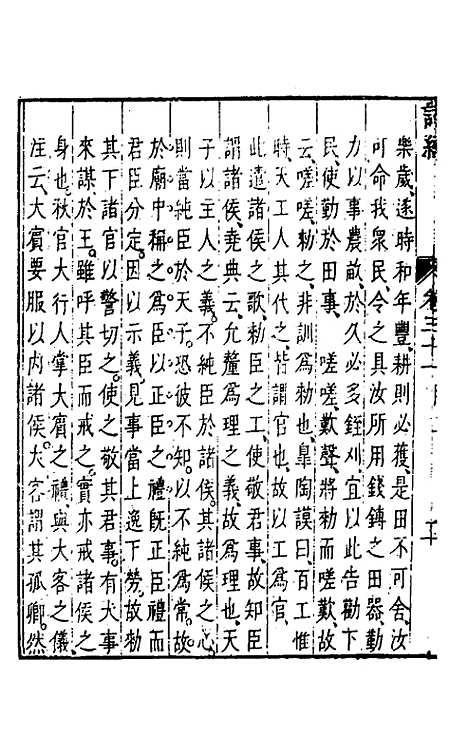 樂歲、遂時和年豐、耕則必獲、是田不可舍、汝
可命我衆民、令之具汝所用錢鎛之田器、勤
力以事農畝、於久必多銍刈、宜以此告勸下
民、使勤於田事、嗟嗟、歎聲、將勑而嗟歎、故
云、嗟嗟勑之、非訓爲勑也、臯陶謨曰、百工惟
時、天工人其代之、皆謂官也、故以工爲官、
此遣諸侯之歌、勑臣之工、使敬君事、故知臣
謂諸侯、堯典云、允釐爲理之義、故爲理也、天
子以主人之義、不純臣於諸侯。其諸侯之心、
則當純臣於天子。恐彼不知。以不純爲常。故
於廟中稱之爲臣。以正君臣之禮。既正臣禮。而
君臣分定。因以示義。見事當上逸下勞。故勑
其下諸官。以警切之。使之敬其君事。有大事
來謀於王。雖呼其臣而戒之。實亦戒諸侯之
身也。秋官大行人掌大賓之禮、與大客之儀、
注云、大賓、要服以内諸侯。大客謂其孤卿。然